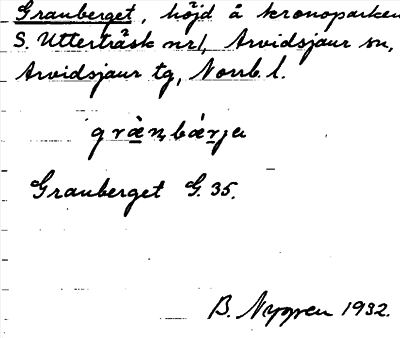 Granberget, höjd å kronoparken
S. Utterträsk nr1, Arvidsjaur sn,
Arvidsjaur tg, Norrb. l.
græ̀n,bǽrje
Granberget G. 35.
B. Nygren 1932.